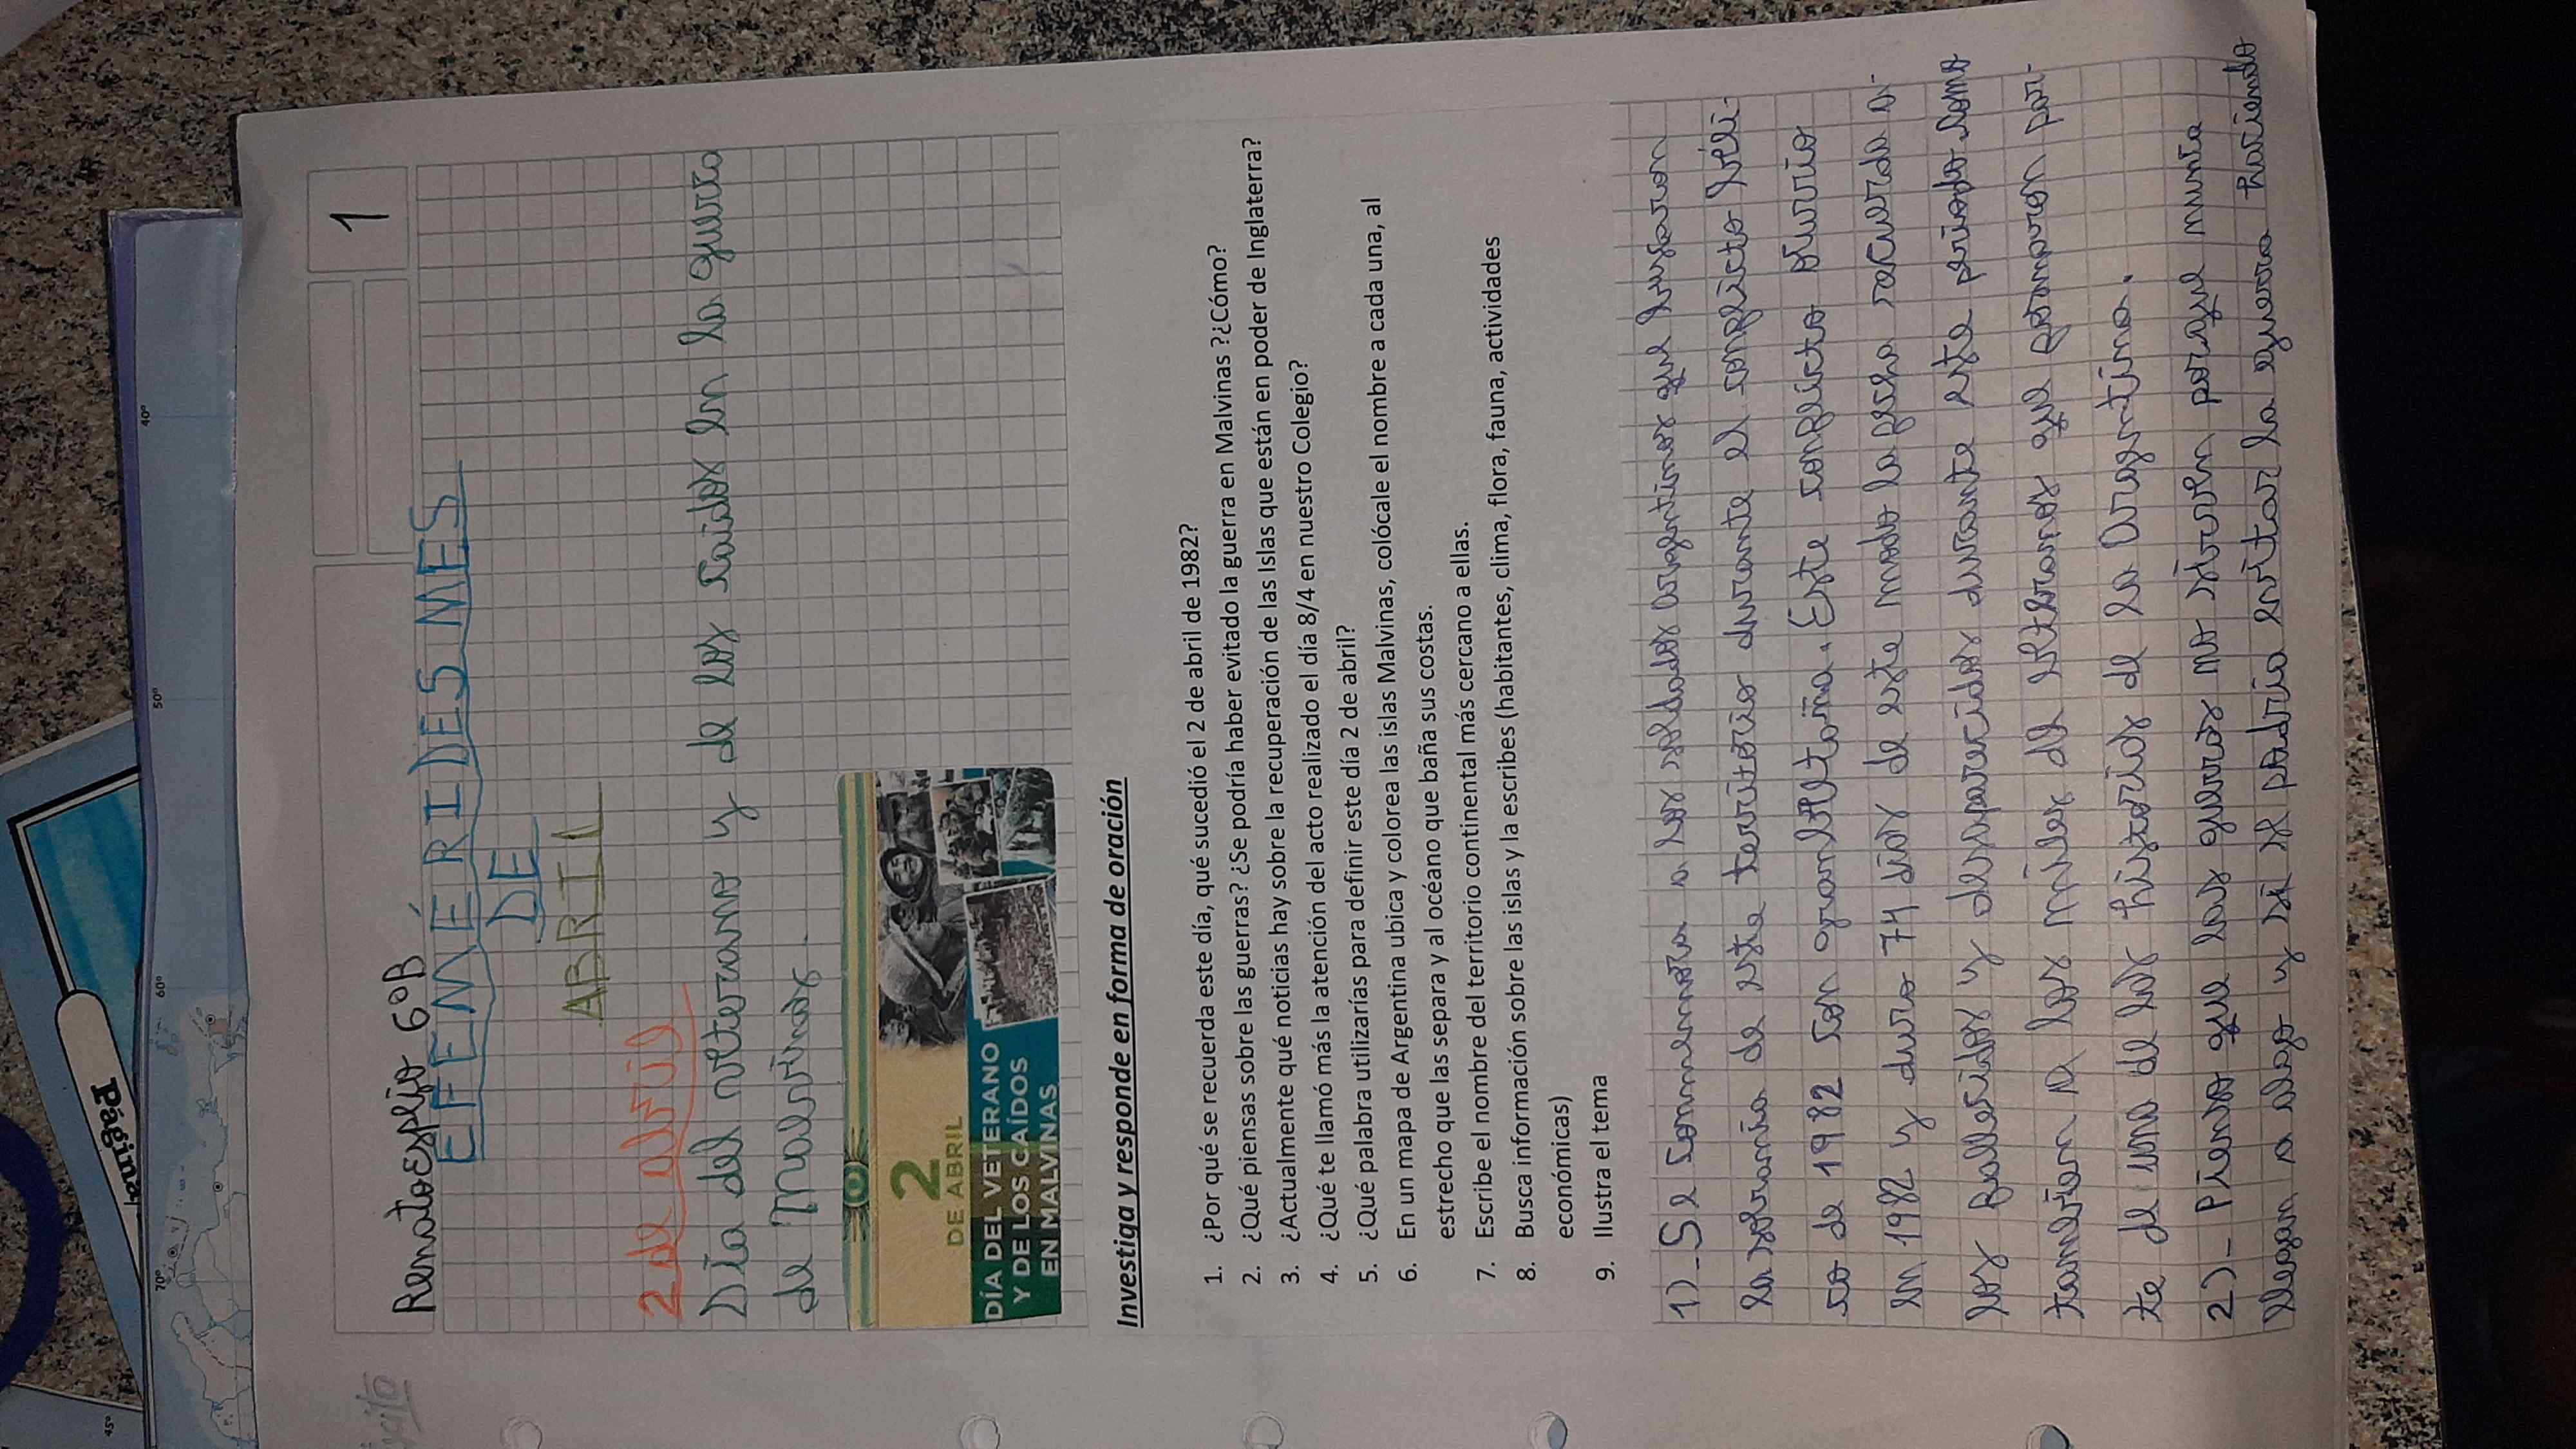 Renato espejo 6°B
1
EFEMÉRIDES MES
DE
ABRIL
2 de abril
Día del veterano y de los caidos en la guerra
de Malvinas.
2
DE ABRIL
DÍA DEL VETERANO
Y DE LOS CAÍDOS
EN MALVINAS
Investiga y responde en forma de oración
1. ¿Por qué se recuerda este día, qué sucedió el 2 de abril de 1982?
2. ¿Qué piensas sobre las guerras? ¿Se podría haber evitado la guerra en Malvinas ?¿Cómo?
3. ¿Actualmente qué noticias hay sobre la recuperación de las Islas que están en poder de Inglaterra?
4. ¿Qué te llamó más la atención del acto realizado el día 8/4 en nuestro Colegio?
5. ¿Qué palabra utilizarías para definir este día 2 de abril?
6. En un mapa de Argentina ubica y colorea las islas Malvinas, colócale el nombre a cada una, al
estrecho que las separa y al océano que baña sus costas.
7. Escribe el nombre del territorio continental más cercano a ellas.
8. Busca información sobre las islas y la escribes (habitantes, clima, flora, fauna, actividades
económicas)
9. Ilustra el tema
1)_ Se conmemora a los soldados argentinos que lucharon
la sobrania de este territorio durante el conflicto béli-
co de 1982 con gran bretaña. Este conflicto ocurrio
en 1982 y duro 74 dias de este modo la fecha recuerda a
los fallecidos y desaparecidos durante este periodo como
tambien a los miles de veteranos que formaron par-
te de una de las historias de la Argentina.
2)_ Pienso que las guerras no sirven porque nunca
llegan a algo y si se podria evitar la guerra haciendo
Página
70°
60°
50°
40°
45°